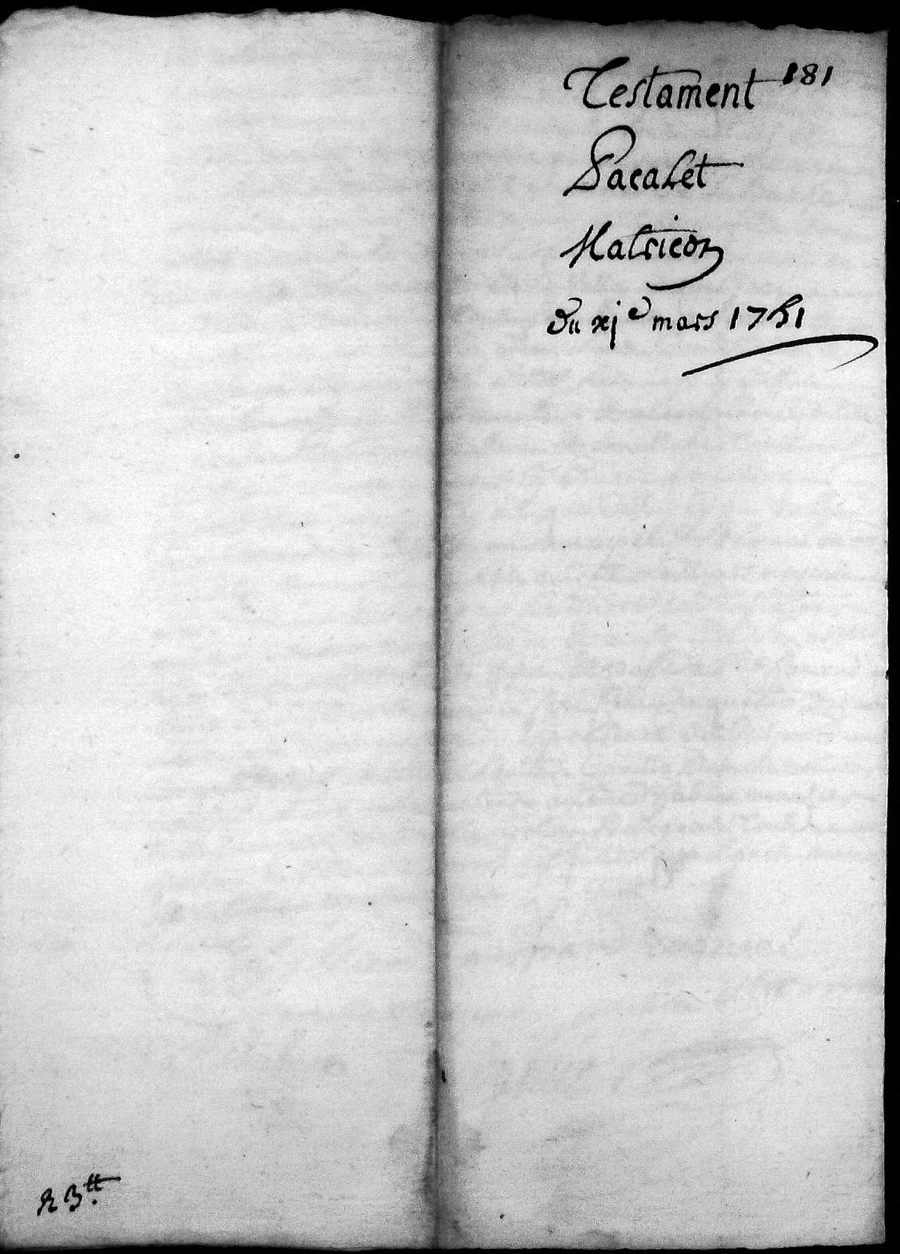 Testament 181
Pacalet
Matricon
du xj.e mars 1751
R 3tt